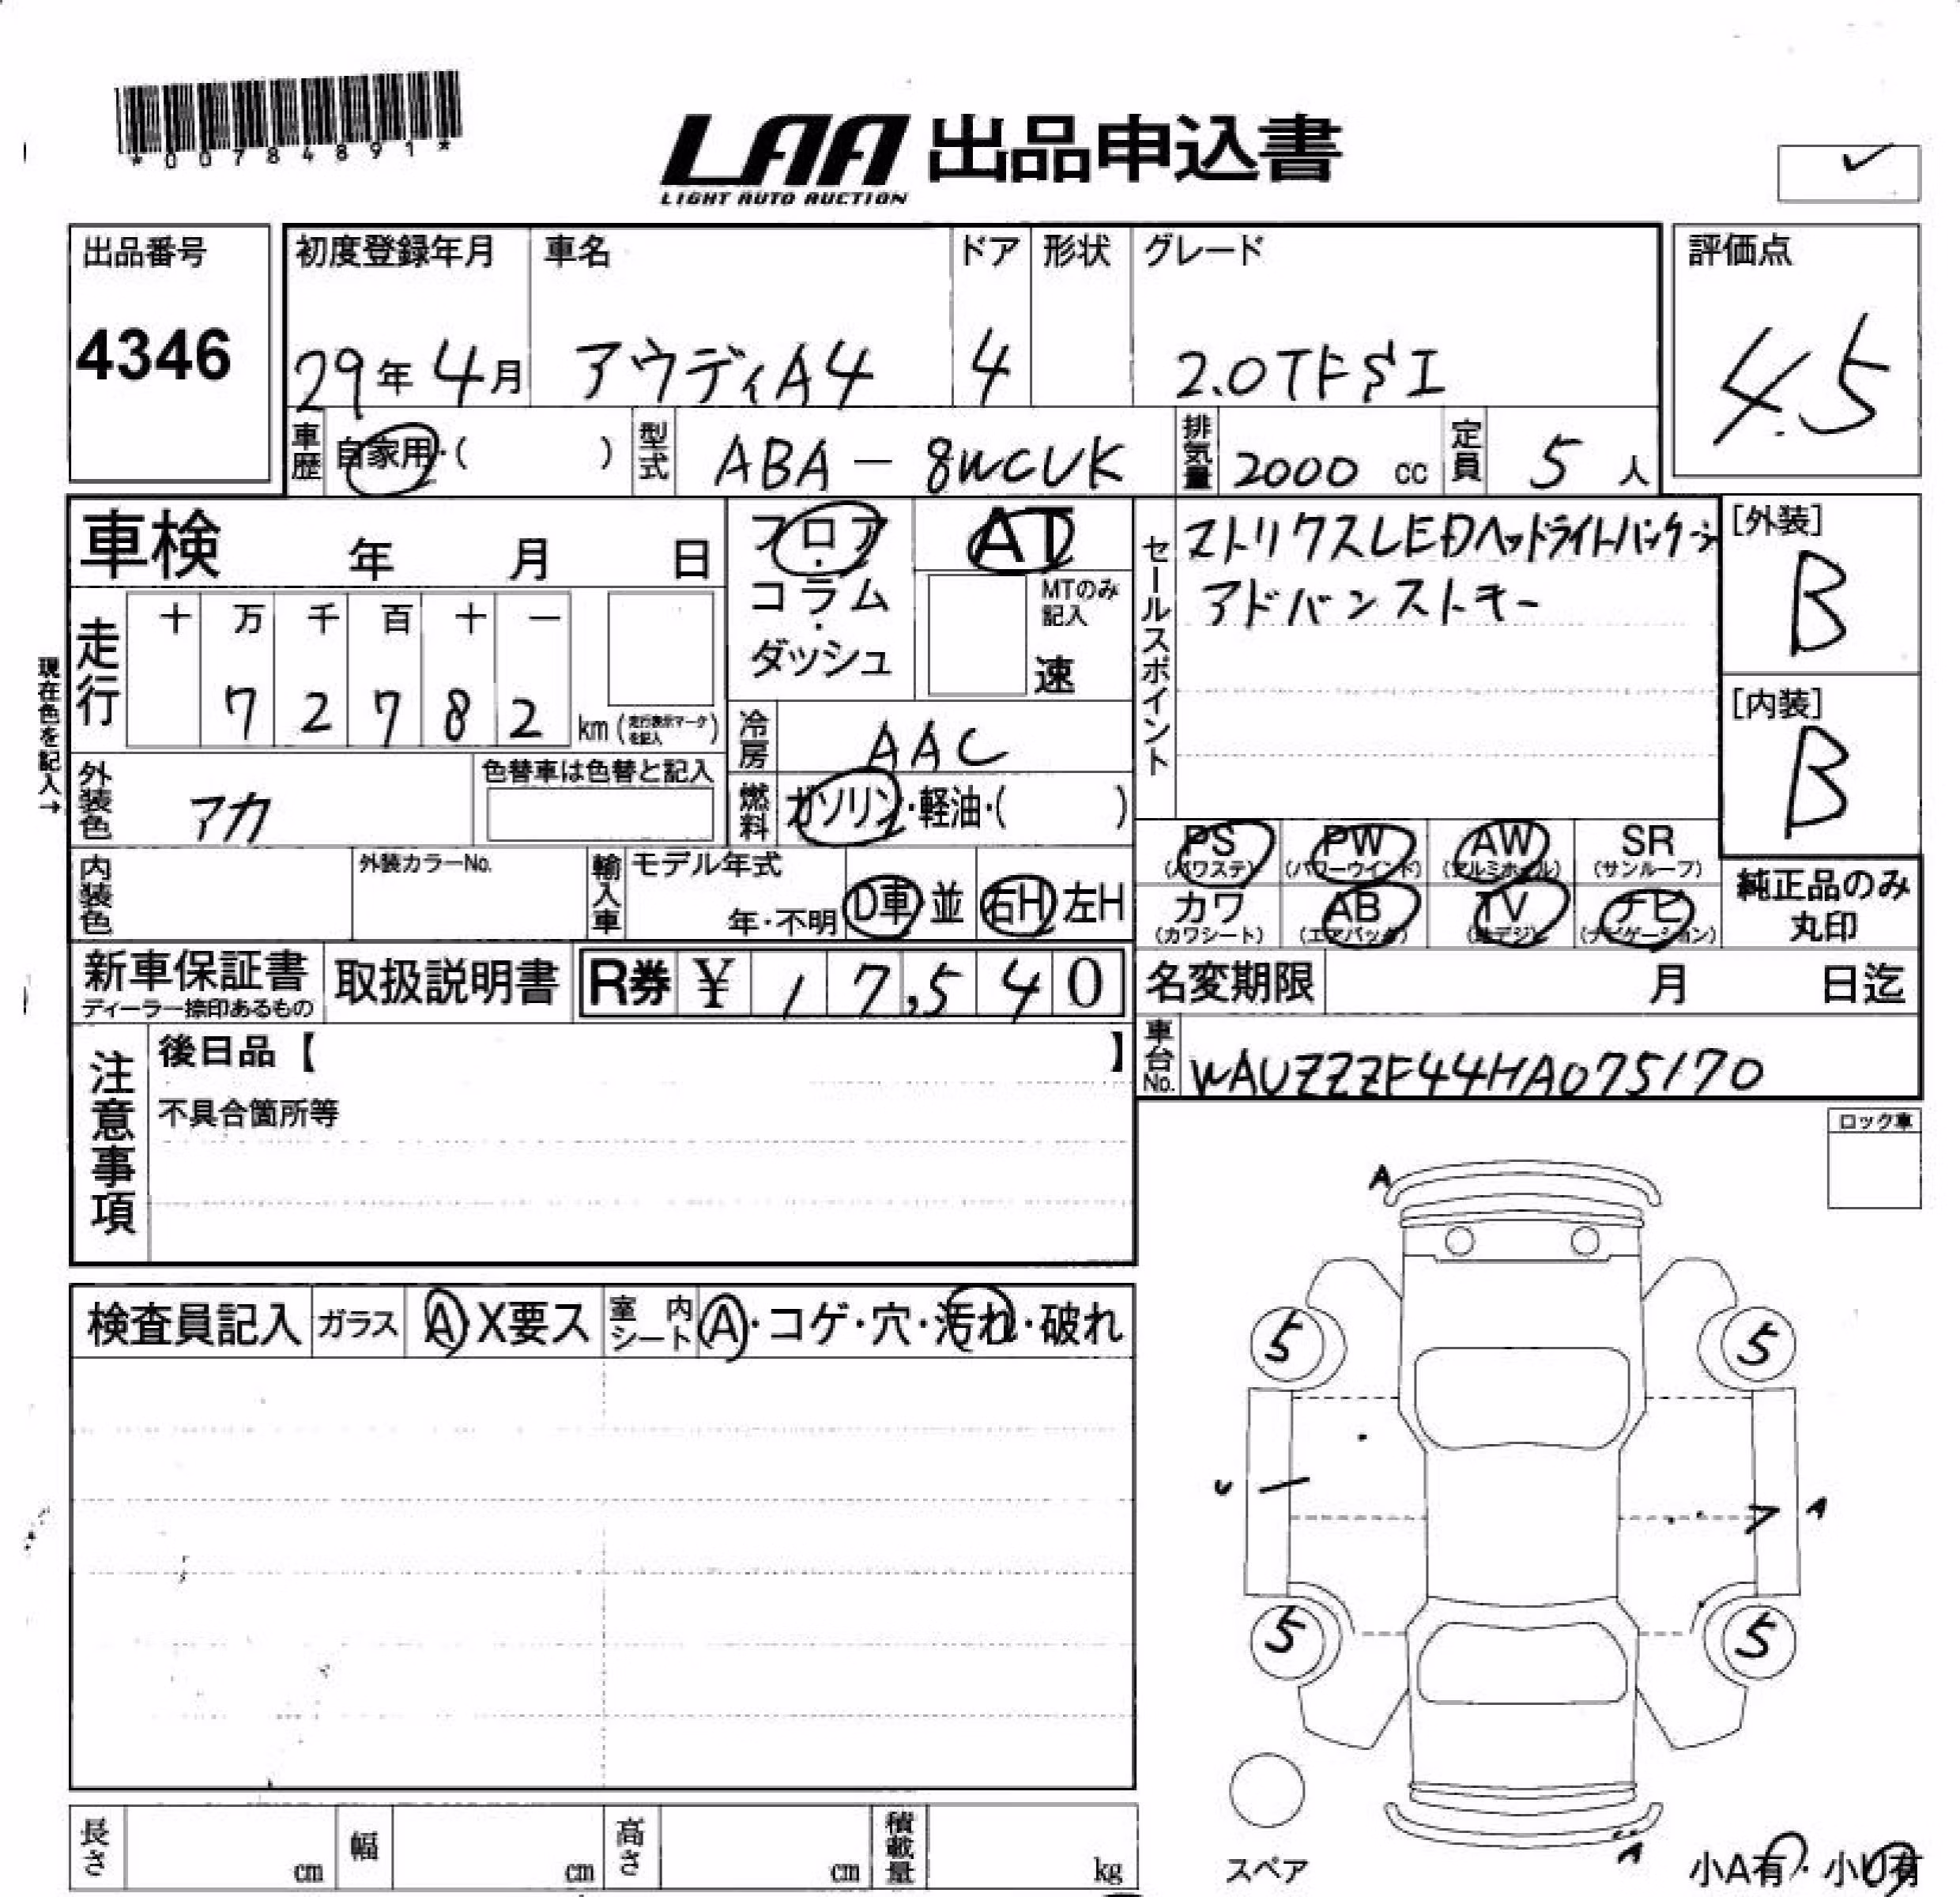 *00784891*
LAA 出品申込書
LIGHT AUTO AUCTION
出品番号 初度登録年月 車名 ドア 形状 グレード 評価点
4346 29年 4月 アウディA4 4 2.0TFSI 4.5
車歴 自家用・( ) 型式 ABA-8WCVK 排気量 2000 cc 定員 5 人
車検 年 月 日 フロア・コラム・ダッシュ AT
MTのみ記入 速
セールスポイント マトリクスLEDヘッドライトパッケージ
アドバンストキー
[外装] B
[内装] B
現在色を記入→
走行 十 万 千 百 十 一
7 2 7 8 2 km (走行表示マークを記入)
冷房 AAC
外装色 アカ 色替車は色替と記入
燃料 ガソリン・軽油・( )
PS (パワステ) PW (パワーウインド) AW (アルミホイル) SR (サンルーフ)
カワ (カワシート) AB (エアバッグ) TV (地デジ) ナビ (ナビゲーション)
純正品のみ丸印
内装色 外装カラーNo. 輸入車 モデル年式 年・不明 D車 並 右H 左H
新車保証書 ディーラー捺印あるもの 取扱説明書 R券 ¥ 17,540
名変期限 月 日迄
車台No. WAUZZZF44HA075170
注意事項 後日品【 】
不具合箇所等
ロック車
A
検査員記入 ガラス A・X要ス 室内シート A・コゲ・穴・汚れ・破れ
5 5
U A
5 5
スペア
A
小A有・小U有
長さ cm 幅 cm 高さ cm 積載量 kg